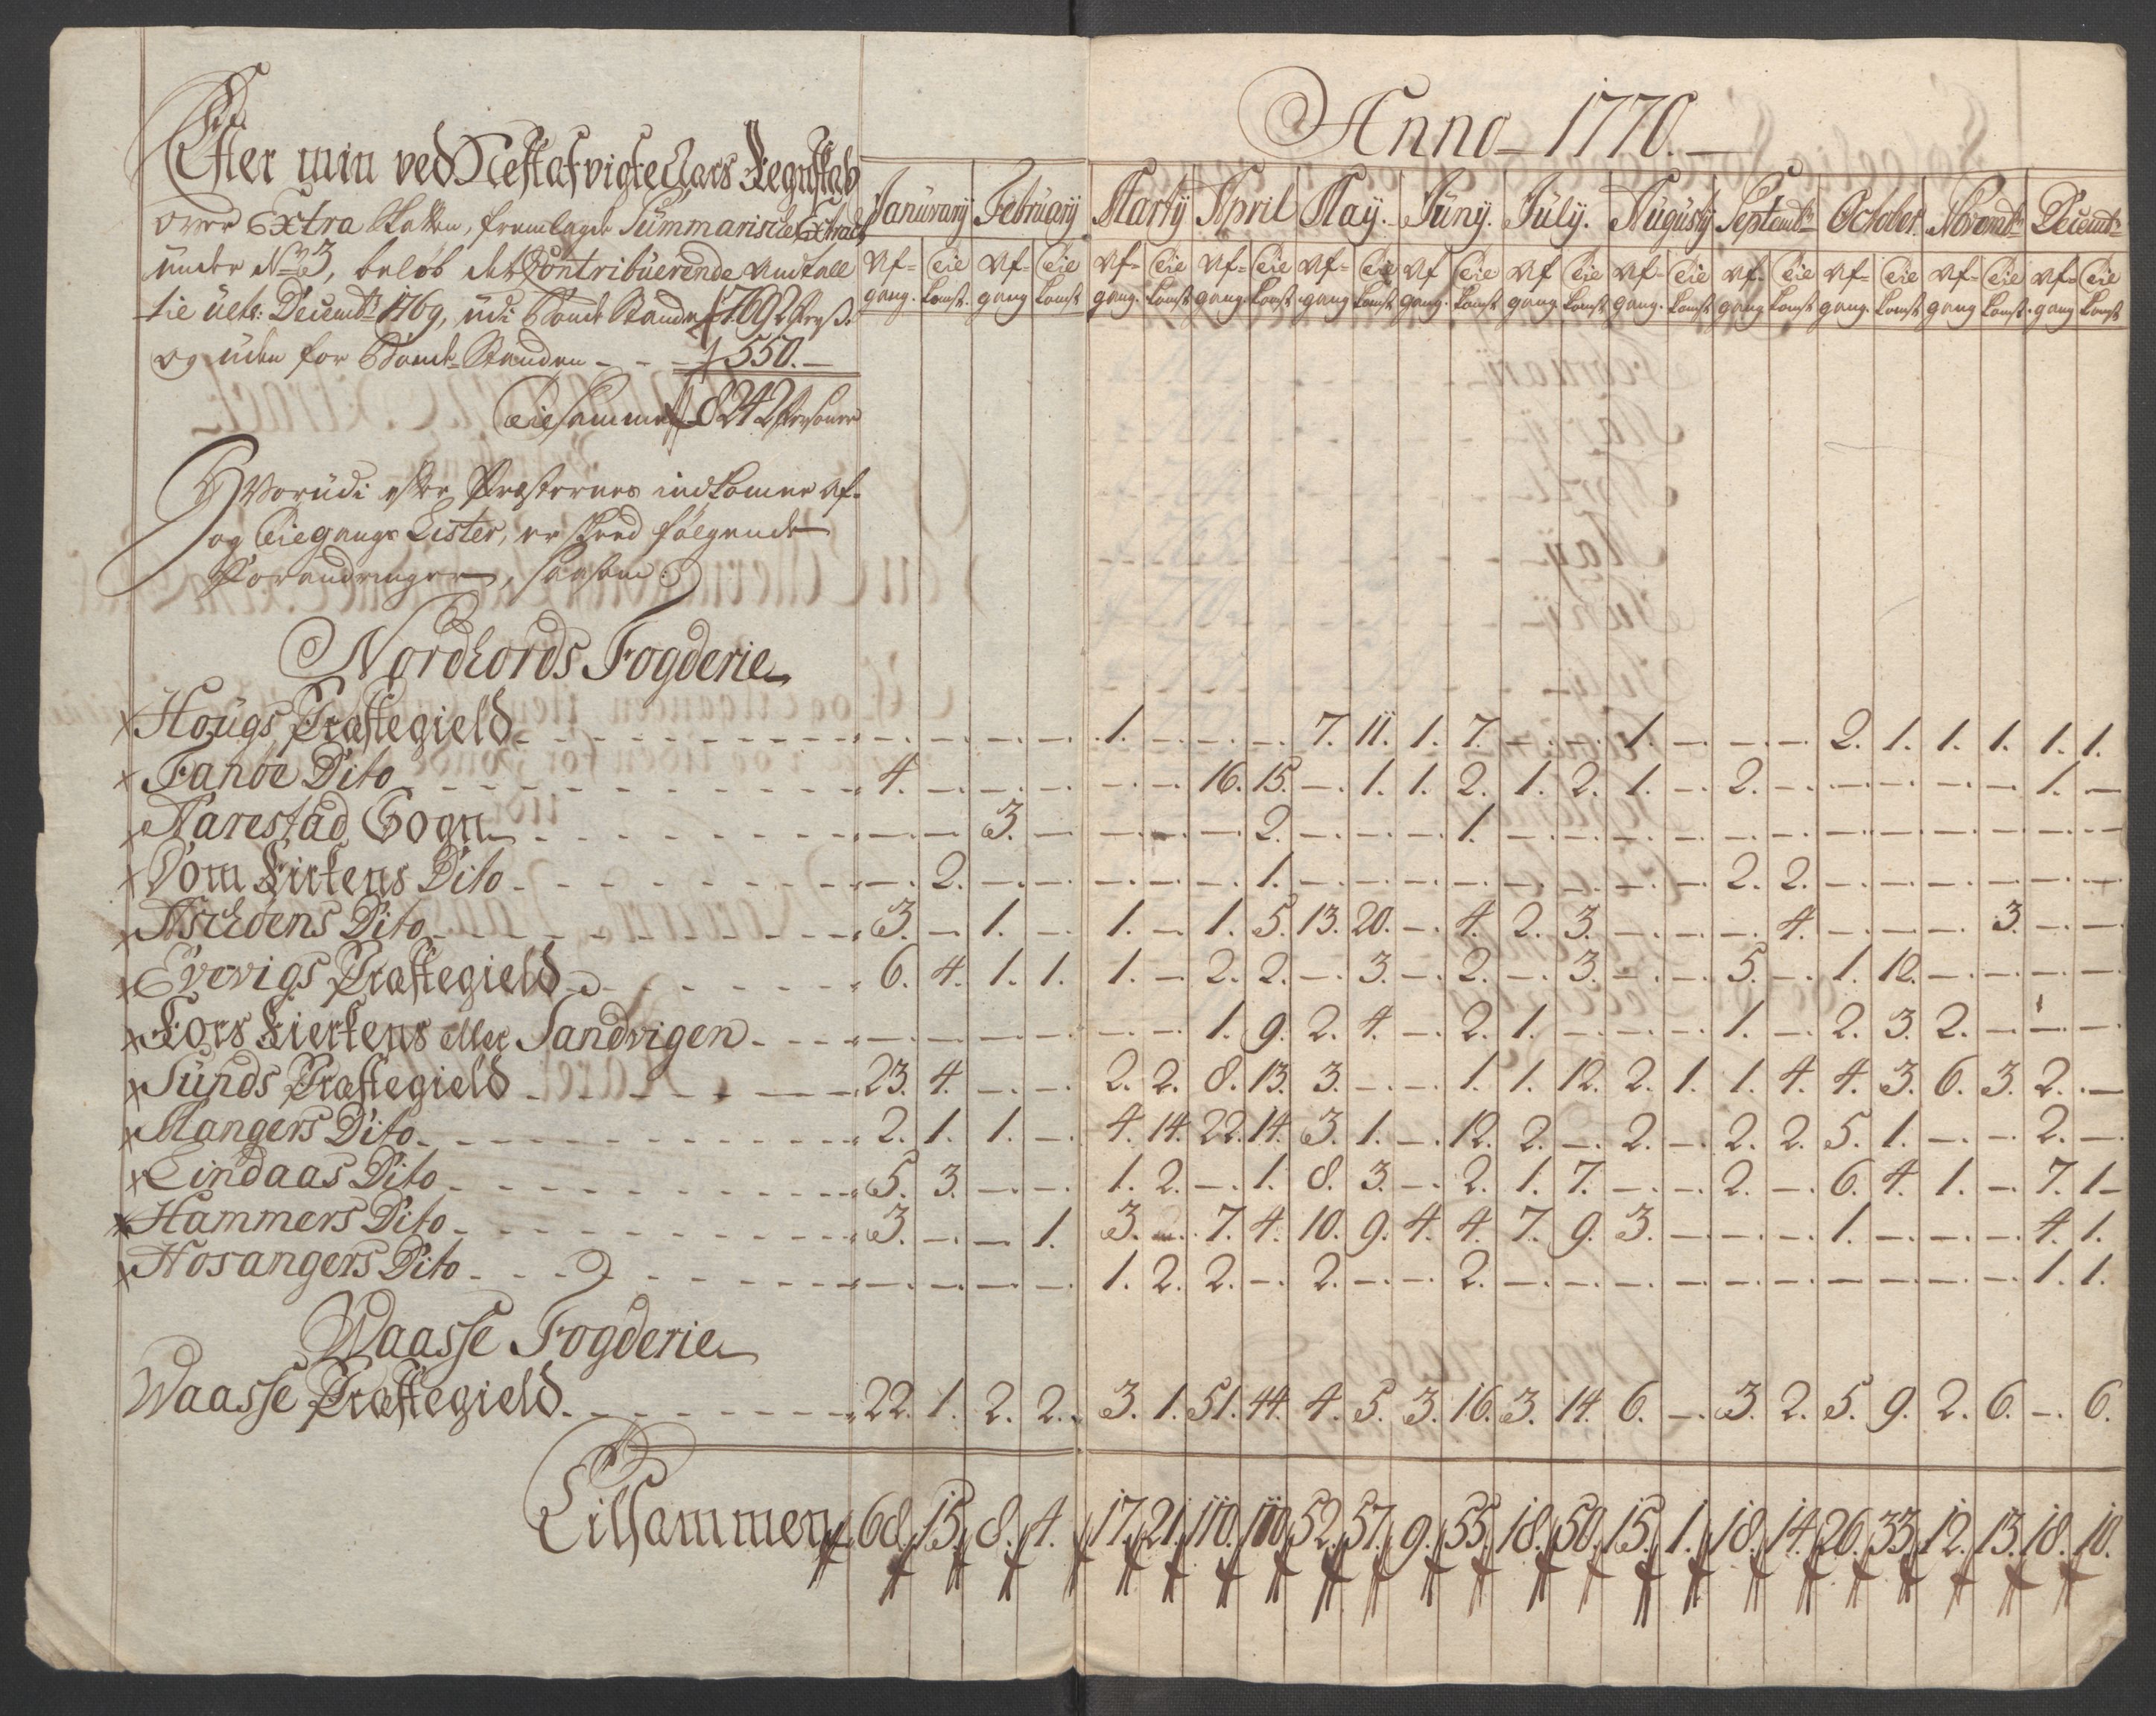 Anno 1770.
Efter min ved Nestafvigte Aars Regnskab
over Extra Skatten, fremlagde Summariske Extract
under No 3, beløb det Contribuerende Andtall
til ult: Decembr 1769, udi Bonde Standen 7692 Pers:
og uden for Bonde-Standen - - - 550.-
Tilsammen 8242 Personer
Hvorudi efter Præsternes indkomne Af-
og Tilgangs Lister, er skeed følgende
Forandringer, saasom:
Januarij Februarij Martij April Maij. Junij. Julij. Augustij Septembr October Novembr Decembr
Af= Til Af= Til Af= Til Af= Til Af= Til Af Til Af Til Af= Til Af= Til Af= Til Af= Til Af= Til
gang. komst. gang komst gang. komst gang. komst gang komst gang. komst gang komst gang. komst gang komst gang. komst gang komst. gang komst
Nordhords Fogderie
Hougs Præstegield - - - - 1. - - - 7. 11. 1. 7. - - 1. - - - 2. 1. 1. 1. 1. 1.
Fanöe Dito 4. - - - - - 16. 15. - 1. 1. 2. 1. 2. 1. - 2. - - - - - 1. -
Aarestad Sogn - - 3. - - - - 2. - - - 1. - - - - - - - - - - - -
Dom Kirkens Dito - 2. - - - - - 1. - - - - - - - - 2. 2. - - - - - -
Aschöens Dito 3. - 1. - 1. - 1. 5. 13. 20. - 4. 2. 3. - - - 4. - - - 3. - -
Evevigs Præstegield 6. 4. 1. 1. 1. - 2. 2. - 3. - 2. - 3. - - 5. - 1. 12. - - - -
Kors Kierkens eller Sandvigen - - - - - - 1. 9. 2. 4. - 2. 1. - - - 1. - 2. 3. 2. - - -
Sunds Præstegield 23. 4. - - 2. 2. 8. 13. 3. - - 1. 1. 12. 2. 1. 1. 4. 4. 3. 6. 3. 2. -
Mangers Dito 2. 1. 1. - 4. 14. 22. 14. 3. 1. - 12. 2. - 2. - 2. 2. 5. 1. - - 2. -
Lindaas Dito 5. 3. - - 1. 2. - 1. 8. 3. - 2. 1. 7. - - 2. - 6. 4. 1. - 7. 1-
Hammers Dito 3. - - 1. 3. - 7. 4. 10. 9. 4. 4. 7. 9. 3. - - - 1. - - - 4. 1.
Hosangers Dito - - - - 1. 2. 2. - 2. - - 2. - - - - - - - - - - 1. 1.
Waasse Fogderie
Waasse Præstegield 22. 1. 2. 2. 3. 1. 51. 44. 4. 5. 3. 16. 3. 14. 6. - 3. 2. 5. 9. 2. 6. - 6.
Tilsammen 68. 15. 8. 4. 17. 21. 110. 110. 52. 57. 9. 55. 18. 50. 15. 1. 18. 14. 26. 33. 12. 13. 18. 10.